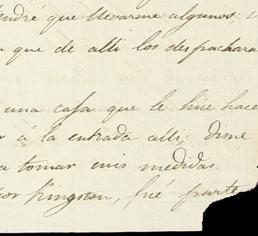 tendré que llevarme algunos
que de alli los despachara
una casa que le hice hace
á la entrada alli; dime
a tomar mis medidas.
por Kingston, fué parte